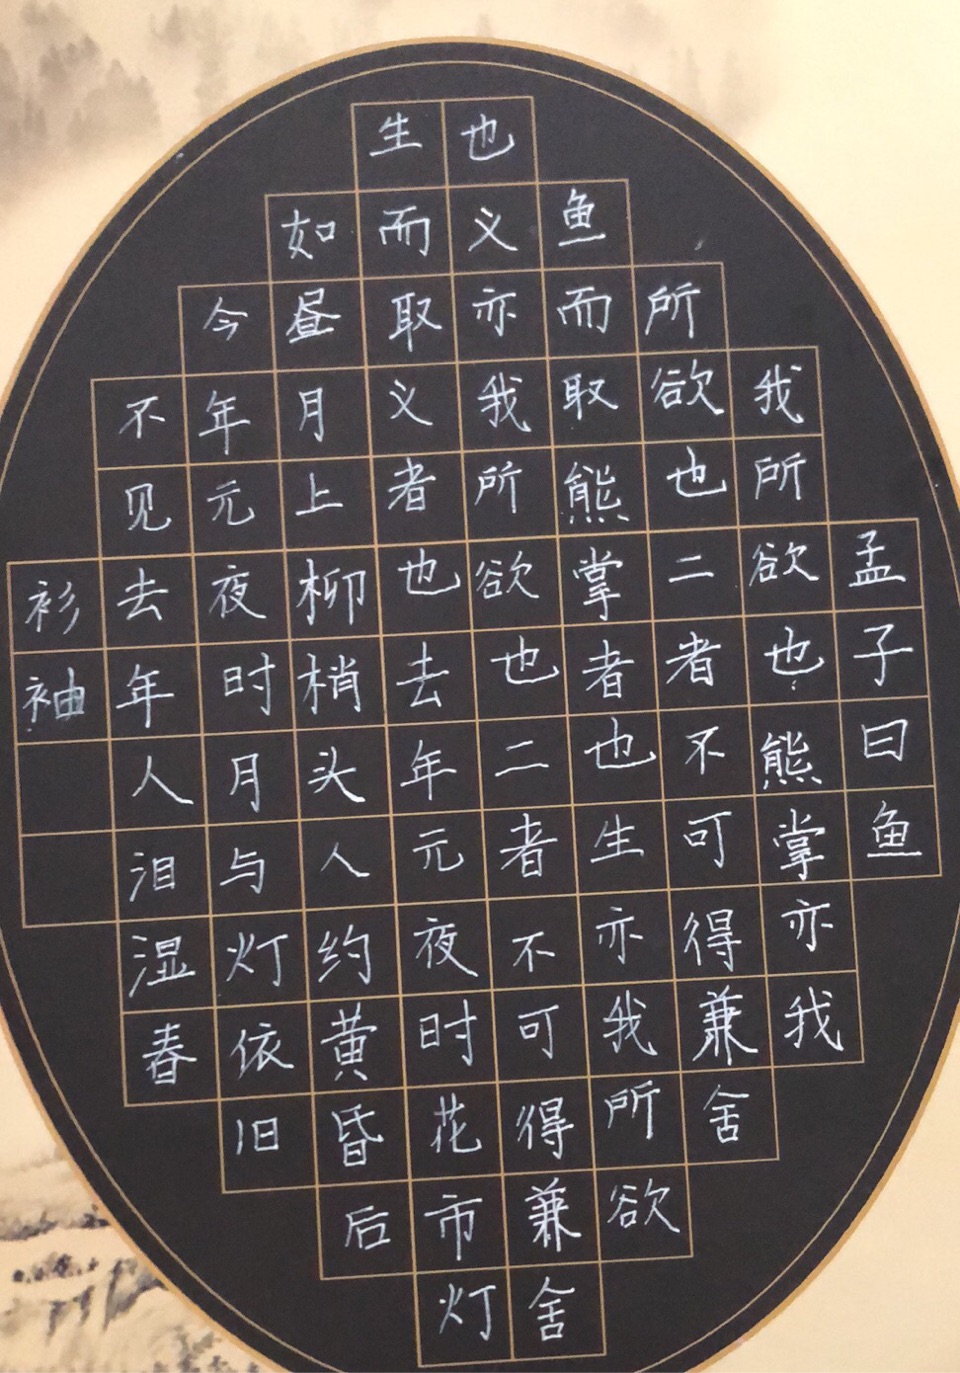 孟子曰鱼
我所欲也熊掌亦我
所欲也二者不可得兼舍
鱼而取熊掌者也生亦我所欲
也义亦我所欲也二者不可得兼舍
生而取义者也去年元夜时花市灯
如昼月上柳梢头人约黄昏后
今年元夜时月与灯依旧
不见去年人泪湿春
衫袖